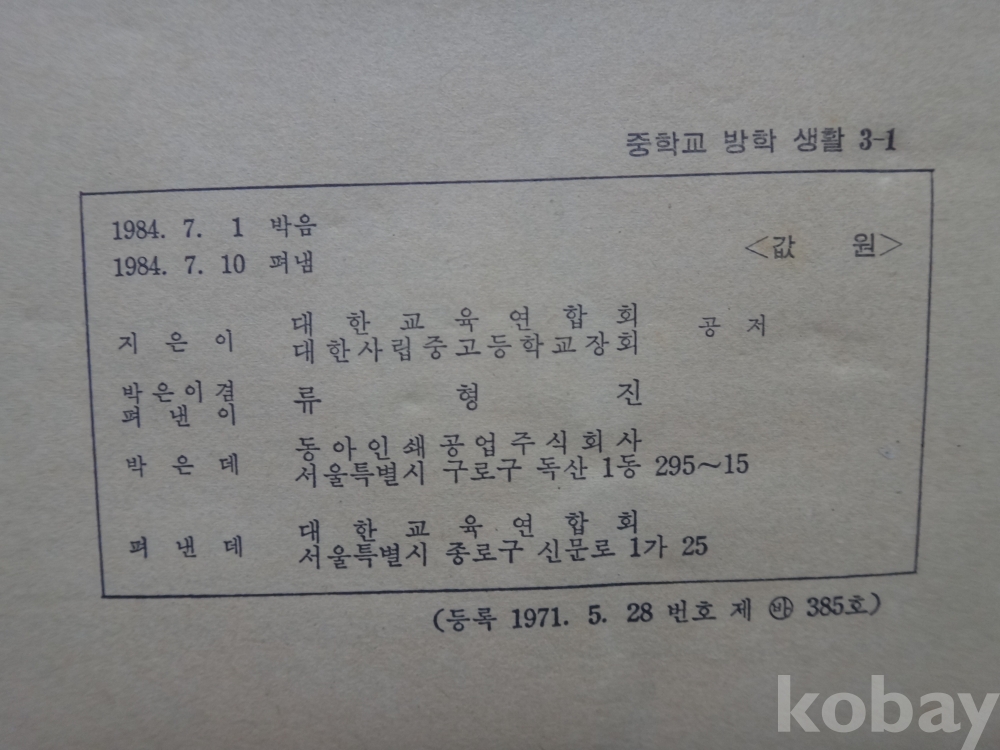 중학교 방학 생활 3-1
1984. 7. 1 박음
1984. 7. 10 펴냄
<값 원>
지은이 대한교육연합회
대한사립중고등학교장회 공저
박은이겸
펴낸이 류형진
박은데 동아인쇄공업주식회사
서울특별시 구로구 독산 1동 295~15
펴낸데 대한교육연합회
서울특별시 종로구 신문로 1가 25
(등록 1971. 5. 28 번호 제 ㉳ 385호)
kobay